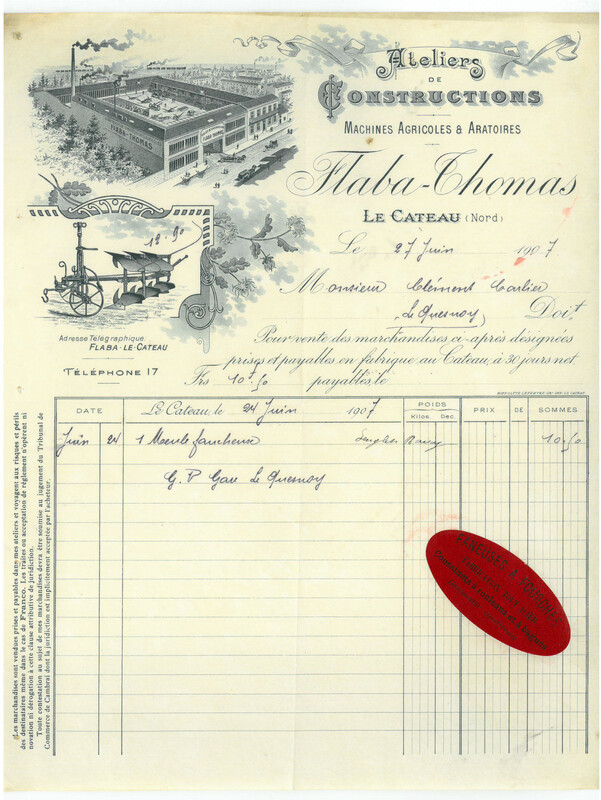 Ateliers
DE
CONSTRUCTIONS
MACHINES AGRICOLES & ARATOIRES
Flaba-Thomas
LE CATEAU (Nord)
FLABA-THOMAS
FLABA THOMAS
Le 27 Juin 1907
19-90
Monsieur Clément Carlier
Le Quesnoy Doit
Pour vente des marchandises ci-après désignées
prises et payables en fabrique au Cateau, à 30 jours net
Frs 10f50 payables le
Adresse Télégraphique
FLABA-LE-CATEAU
TÉLÉPHONE 17
DATE Le Cateau, le 24 Juin 1907 POIDS PRIX DE SOMMES
Kilos Dec.
Juin 24 1 Meule faucheuse 10.50
G. P Gare Le Quesnoy
FANEUSES & 
Les marchandises sont vendues prises et payables dans mes ateliers et voyagent aux risques et périls
des destinataires même dans le cas de Franco. Les traites ou acceptation de règlement n'opèrent ni
novation ni dérogation à cette clause attributive de juridiction.
Toute contestation au sujet de mes marchandises devra être soumise au jugement du Tribunal de
Commerce de Cambrai dont la juridiction est implicitement acceptée par l'acheteur.